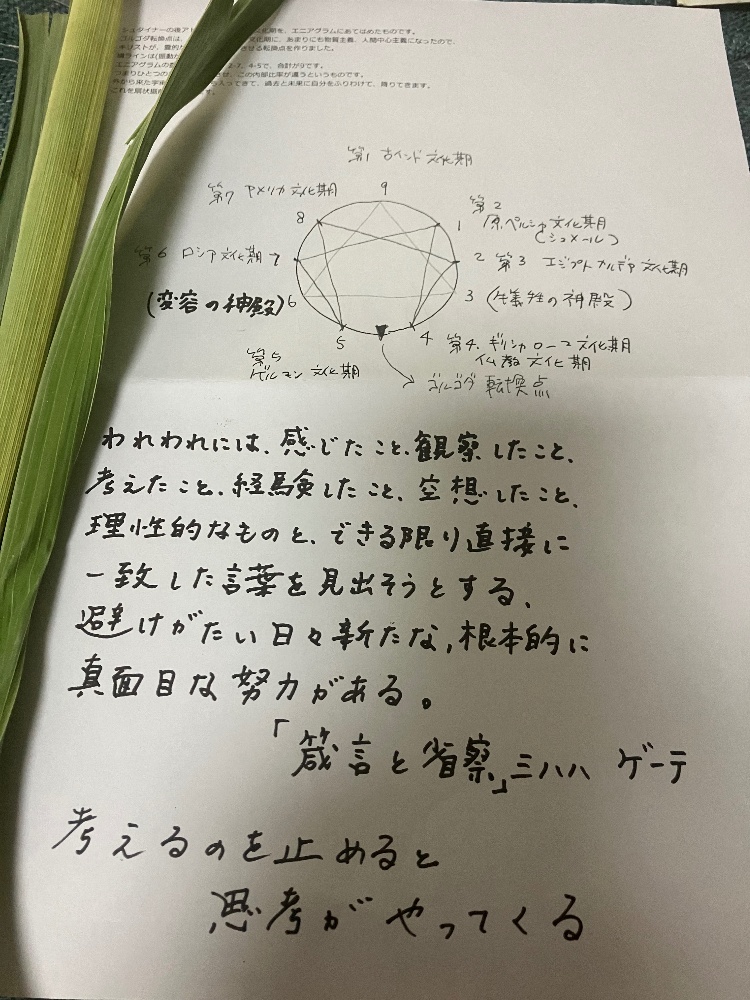 シュタイナーの後アト
化期を、エニアグラムにあてはめたものです。
ゴルゴダ転換点は、
化期に、あまりにも物質主義、人間中心主義になったので、
キリストが、霊的
させる転換点を作りました。
横ラインは(振動
エニアグラムの
2-7、4-5で、合計が9です。
つまりひとつの
せ、この内部比率が違うというものです。
外から来た学
入ってきて、過去と未来に自分をふりわけて、降りてきます。
これを扇状
す。
第1 古インド文化期
第7 アメリカ文化期
9
8
1
第2
原ペルシャ文化期
(シュメール)
第6 ロシア文化期
7
2
第3 エジプトカルデア文化期
(変容の神殿)
6
3
(生義性の神殿)
5
4
第4. ギリシャローマ文化期
仏教文化期
第5
ゲルマン文化期
ゴルゴダ転換点
われわれには、感じたこと、観察したこと、
考えたこと、経験したこと、空想したこと、
理性的なものと、できる限り直接に
一致した言葉を見出そうとする、
避けがたい日々新たな、根本的に
真面目な努力がある。
「箴言と省察」三八八 ゲーテ
考えるのを止めると
思考がやってくる